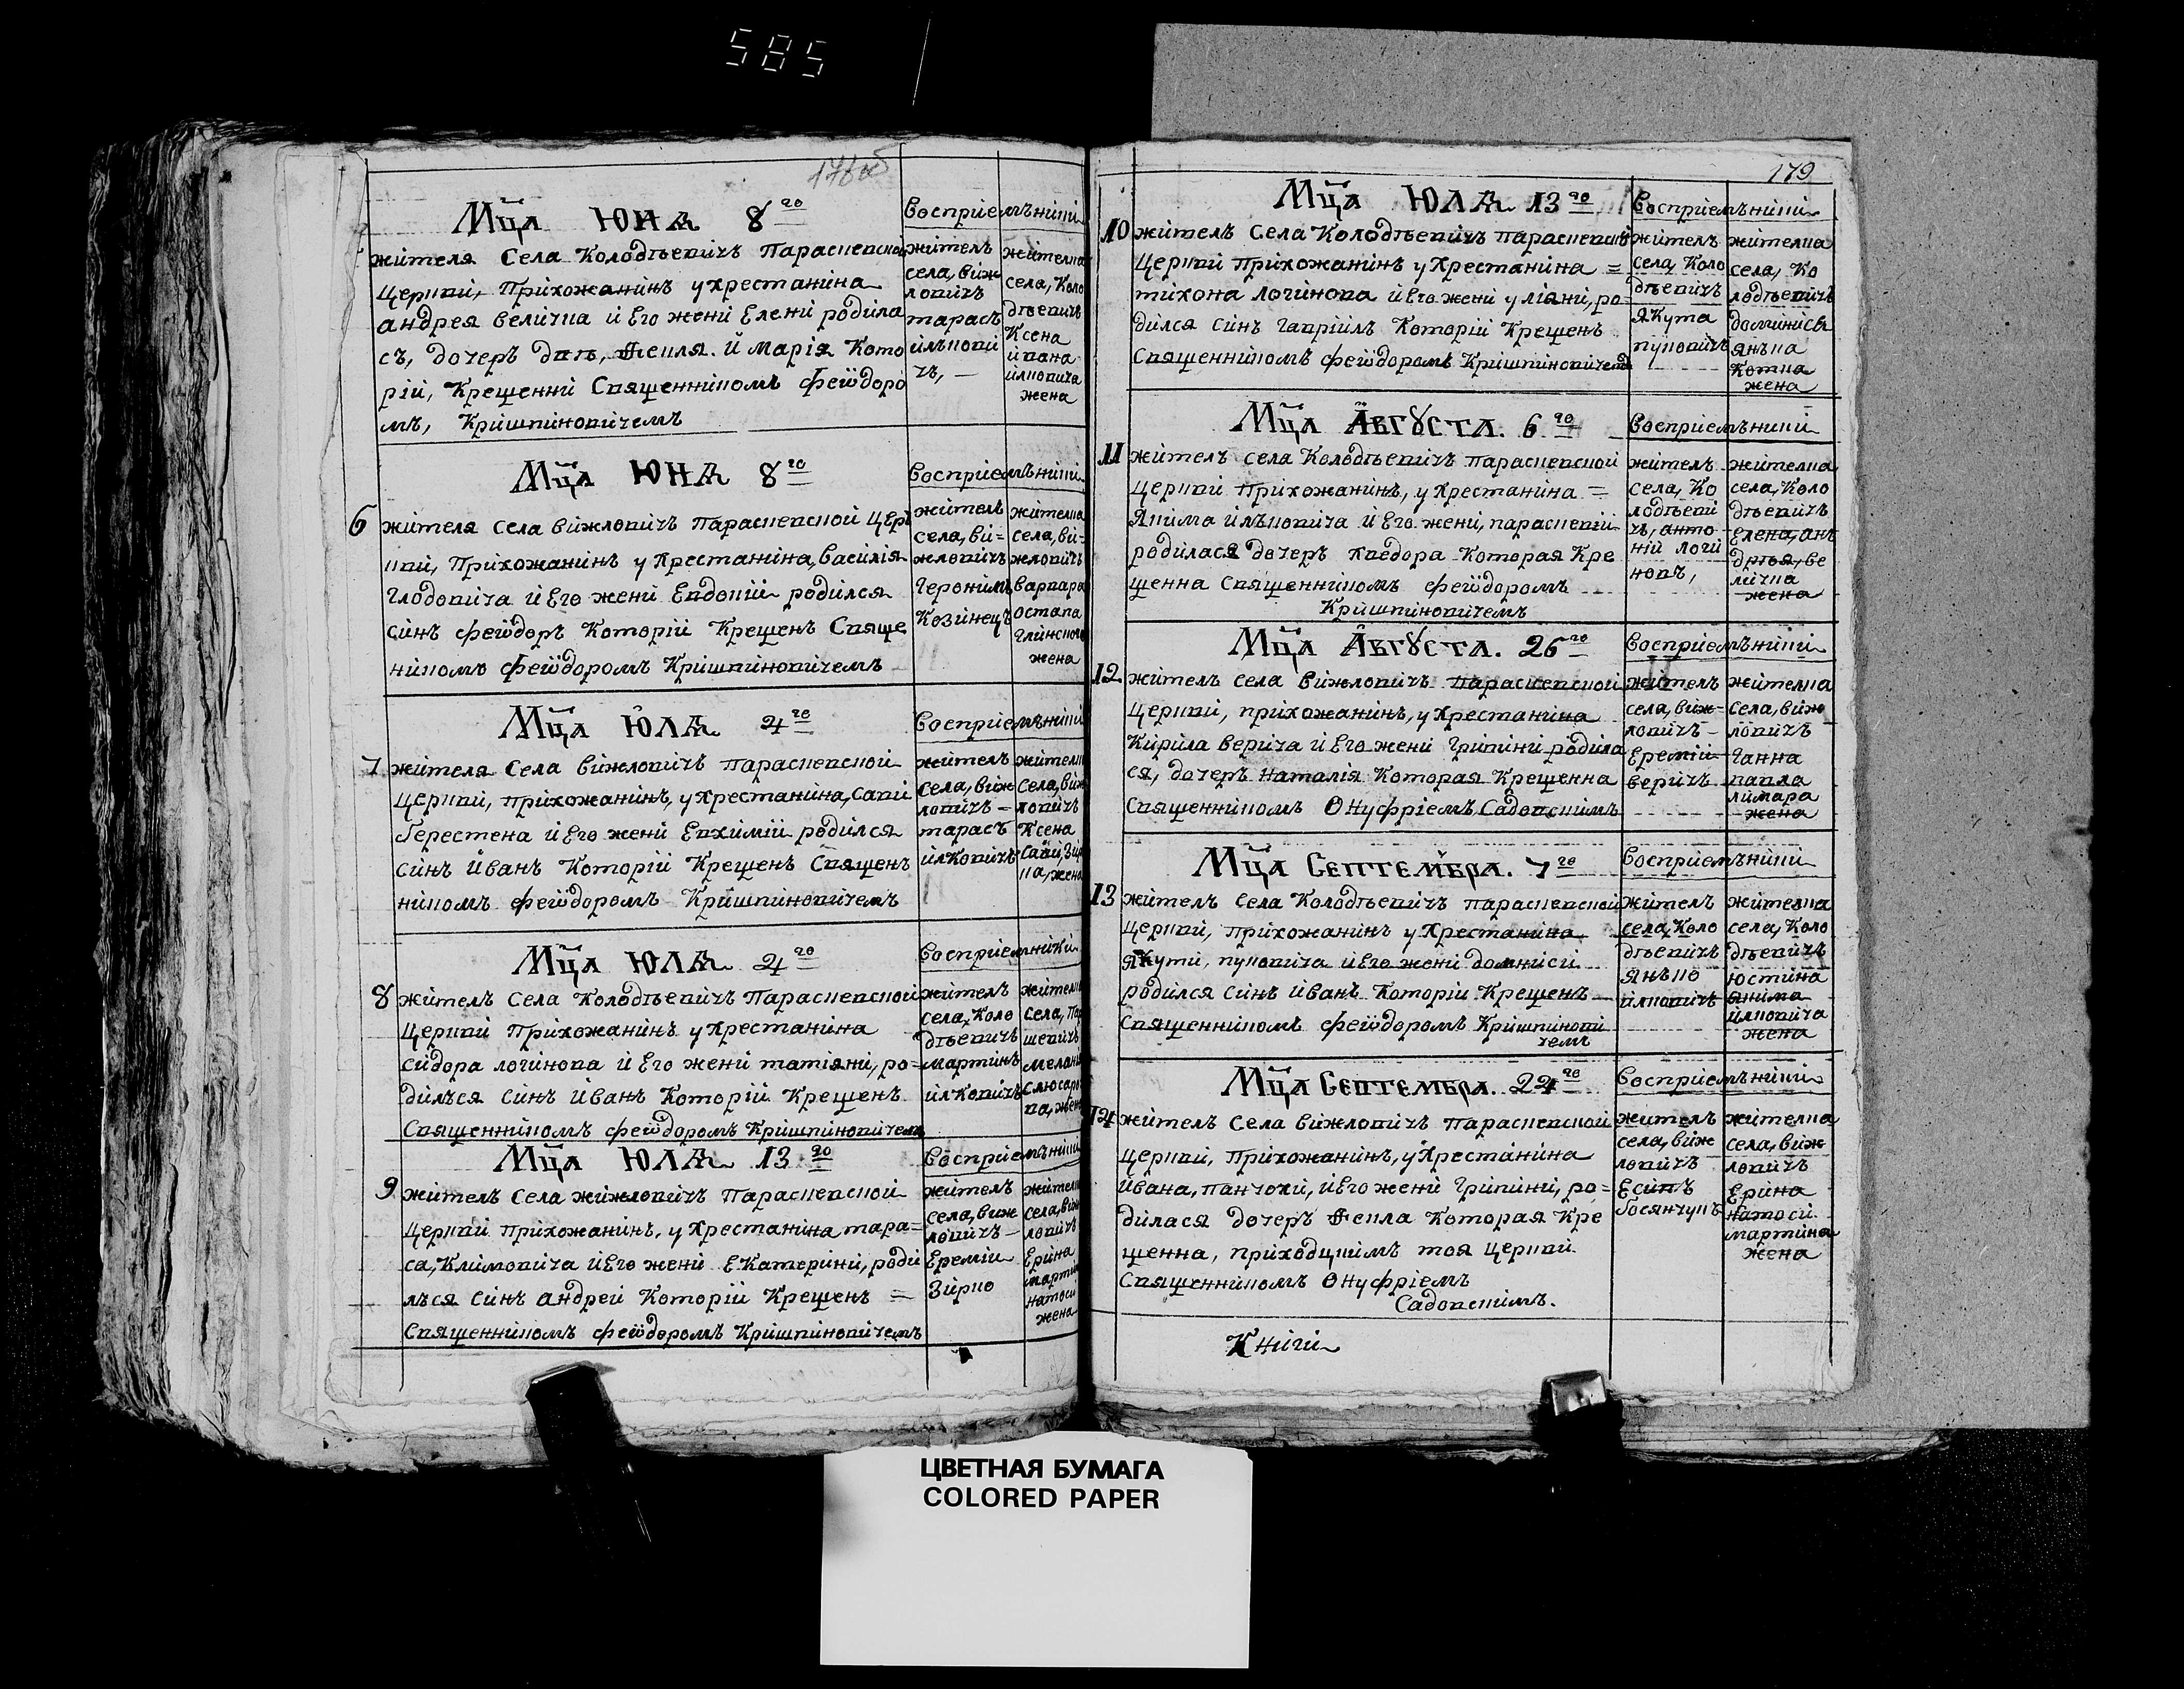 585
178об
Мца ЮНѦ 8го
Восприемъники
жителя Села Колодѣевичъ Параскевской
Церкви, Прихожанинъ у хрестанина
андрея величка и Его жени Елени родила
съ, дочерь двѣ, Ѳекля. И Марія Кото
рій, Крещенни Священникомъ феѡдоро
мъ, Кришпиновичемъ
житель
села, виж
ловичъ
тарасъ
илькови
чъ, —
жителка
села, Коло
дѣевичъ
Ксена
ивана
илковича
жена
Мца ЮНѦ 8го
Восприемъники
6
жителя Села вижловичъ Параскевской Цер
кви, Прихожанинъ у Хрестанина, Василія
Глодовича и Его жени Евдокіи родился
синъ феѡдоръ Которій Крещенъ Свяще
никомъ феѡдоромъ Кришпиновичемъ
житель
села, ви=
жловичъ
Геронимъ
Козинецъ
жителка
села, ви=
жловичъ
варвара
остапа
глинского
жена
Мца ЮЛѦ 4го
Восприемъники
7
жителя Села вижловичъ параскевской
Церкви, прихожанинъ, у Хрестанина, Сави
берестена и Его жени Евхимии родился
синъ Иванъ Которій Крещенъ Священ
никомъ феѡдоромъ Кришпиновичемъ
житель
Села, виж
ловичъ —
тарасъ
илковичъ
Села, виж
ловичъ
Ксена
Сави, Зир
ка, жена
Мца ЮЛѦ 4го
Восприемники
8
жителъ Села Колодѣевичъ Параскевской
Церкви Прихожанинъ у Хрестанина
Сидора логинова и Его жени татіяни, ро=
дилъся Синъ Иванъ Которій Крещенъ
Священникомъ феѡдоромъ Кришпиновичемъ
жителъ
села, Коло
дѣевичъ
мартинъ
илковичъ
Мца ЮЛѦ 13го
Восприемъники
9
жителъ Села жижловичъ Параскевской
Церкви Прихожанинъ, у Хрестанина тара=
са, Климовича и Его жени Екатерини, роди
лъся Синъ андреи Которій Крещенъ =
Священникомъ феѡдоромъ Кришпиновичемъ
жителъ
села, виж
ловичъ —
Еремии
Зирко
села, виж
ловичъ
Ерина
мартина
натоси
жена
179
Мца ЮЛѦ 13го
Восприемъники
10
жителъ Села Колодѣевичъ параскевской
Церкви Прихожанинъ у Хрестанина =
тихона логинова и Его жени уліяни, ро=
дился Синъ гавріилъ Которій Крещенъ
Священникомъ феѡдоромъ Кришпиновичемъ
жителъ
села, Коло
дѣевичъ
Якута
пуковичъ
жителка
села, Ко
лодѣевичъ
доминися
янъка
котка
жена
Мца АВГꙊСТА. 6го
Восприемъники
11
жителъ села Колодѣевичъ параскевской
Церкви Прихожанинъ, у Хрестанина =
Якима илъковича и Его жени, параскевіи
родилася дочеръ хведора Которая Кре
щенна Священникомъ феѡдоромъ
Кришпиновичемъ
жителъ
села, Ко
лодѣеви
чъ, анто
ній логи
новъ,
жителка
села, Коло
дѣевичъ
Елена, анъ
дрѣя, ве
личка
жена
Мца АВГꙊСТА. 26го
Восприемъники
12
жителъ села вижловичъ параскевской
Церкви, прихожанинъ, у Хрестанина
Кирила верича и Его жени Грипини родила
ся, дочеръ Наталія Которая Крещенна
Священникомъ Онуфріемъ Садовскимъ
жителъ
села, виж=
ловичъ —
Еремій
веричъ
жителка
села, виж
ловичъ
Ганна
павла
лимара
жена
Мца СЕПТЕМБРА. 7го
Восприемъники
13
жителъ Села Колодѣевичъ параскевской
Церкви, прихожанинъ у Хрестанина
Якути, пуковича и Его жени домниси
родился Синъ Иванъ Которій Крещенъ
Священникомъ феѡдоромъ Кришпинови
чемъ
жителъ
села, Коло
дѣевичъ
Янъко
илковичъ
жителка
села, Коло
дѣевичъ
юстина
якима
илковича
жена
Мца СЕПТЕМБРА. 24го
Восприемъники
14
жителъ Села вижловичъ Параскевской
Церкви, Прихожанинъ, у Хрестанина
Ивана, панчохи, и Его жени Грипини, ро=
дилася дочеръ Ѳекла Которая Кре
щенна, приходцкимъ тоя Церкви
Священникомъ Онуфріемъ
Садовскимъ.
жителъ
села, виж
ловичъ
Есипъ
босянчукъ
жителка
села, виж
ловичъ
Ерина
натоси
мартина
жена
Книги
ЦВЕТНАЯ БУМАГА
COLORED PAPER